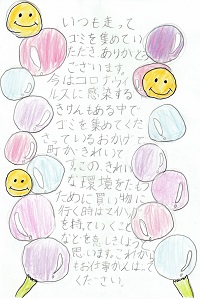 いつも走って
ゴミを集めてい
ただきありがとう
ございます。
今はコロナウイ
ルスに感染する
きけんもある中で
ゴミを集めてくだ
さっているおかげで
町がきれいで
す。この、きれい
な環境をたもつ
ために買い物に
行く時はマイバッグ
を持っていくこと
などを意しきしようと
思います。これから
もお仕事がんばって
ください。